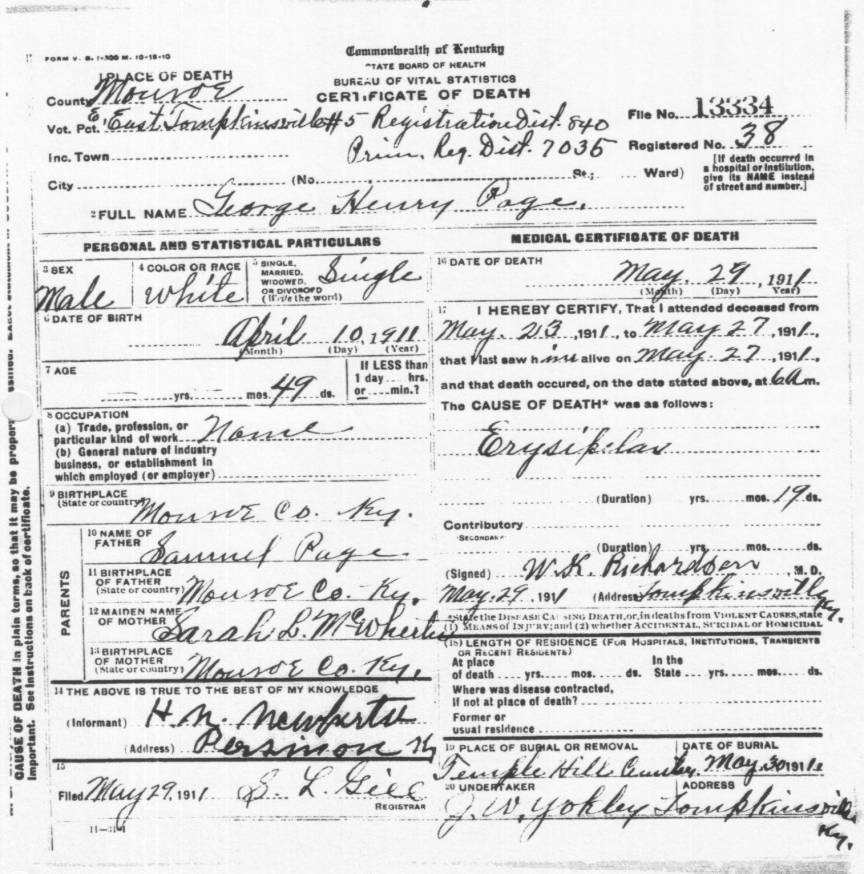 FORM V. S. 1-300 M. 10-18-10
Commonwealth of Kentucky
STATE BOARD OF HEALTH
BUREAU OF VITAL STATISTICS
CERTIFICATE OF DEATH
1 PLACE OF DEATH
County Monroe
Vot. Pct. E, East Tompkinsville #5 - Registration Dist. 840
File No. 13334
Inc. Town Prim. Reg. Dist. 7035
Registered No. 38
City (No. St.; Ward)
[If death occurred in a hospital or institution, give its NAME instead of street and number.]
2 FULL NAME George Henry Page.
PERSONAL AND STATISTICAL PARTICULARS
3 SEX Male
4 COLOR OR RACE White
5 SINGLE, MARRIED, WIDOWED, OR DIVORCED (Write the word) Single
6 DATE OF BIRTH
April 10, 1911
(Month) (Day) (Year)
7 AGE
yrs. mos. 49 ds.
If LESS than 1 day hrs. or min.?
8 OCCUPATION
(a) Trade, profession, or particular kind of work None
(b) General nature of industry business, or establishment in which employed (or employer)
9 BIRTHPLACE
(State or country) Monroe Co. Ky.
PARENTS
10 NAME OF FATHER Samuel Page
11 BIRTHPLACE OF FATHER (State or country) Monroe Co. Ky.
12 MAIDEN NAME OF MOTHER Sarah L. McWherter
13 BIRTHPLACE OF MOTHER (State or country) Monroe Co. Ky.
14 THE ABOVE IS TRUE TO THE BEST OF MY KNOWLEDGE
(Informant) H. N.
(Address) Persimon Ky
15
Filed May 29, 1911 S. L. Gill
REGISTRAR
11-3184
MEDICAL CERTIFICATE OF DEATH
16 DATE OF DEATH
May. 29, 1911
(Month) (Day) (Year)
17 I HEREBY CERTIFY, That I attended deceased from
May. 23, 1911, to May 27, 1911,
that I last saw him alive on May. 27, 1911,
and that death occured, on the date stated above, at 6 A m.
The CAUSE OF DEATH* was as follows:
Erysipelas
(Duration) yrs. mos. 19 ds.
Contributory
SECONDARY
(Duration) yrs. mos. ds.
(Signed) W. K. Richardson M. D.
May. 29, 1911 (Address) Tompkinsville Ky.
*State the DISEASE CAUSING DEATH, or, in deaths from VIOLENT CAUSES, state
(1) MEANS OF INJURY; and (2) whether ACCIDENTAL, SUICIDAL or HOMICIDAL
(18) LENGTH OF RESIDENCE (FOR HOSPITALS, INSTITUTIONS, TRANSIENTS
OR RECENT RESIDENTS)
At place of death yrs. mos. ds. In the State yrs. mos. ds.
Where was disease contracted,
If not at place of death?
Former or
usual residence
19 PLACE OF BURIAL OR REMOVAL
Temple Hill
DATE OF BURIAL
May 30 1911
20 UNDERTAKER
J. W. Yokley
ADDRESS
Tompkinsville Ky.
CAUSE OF DEATH in plain terms, so that it may be proper
Important. See instructions on back of certificate.